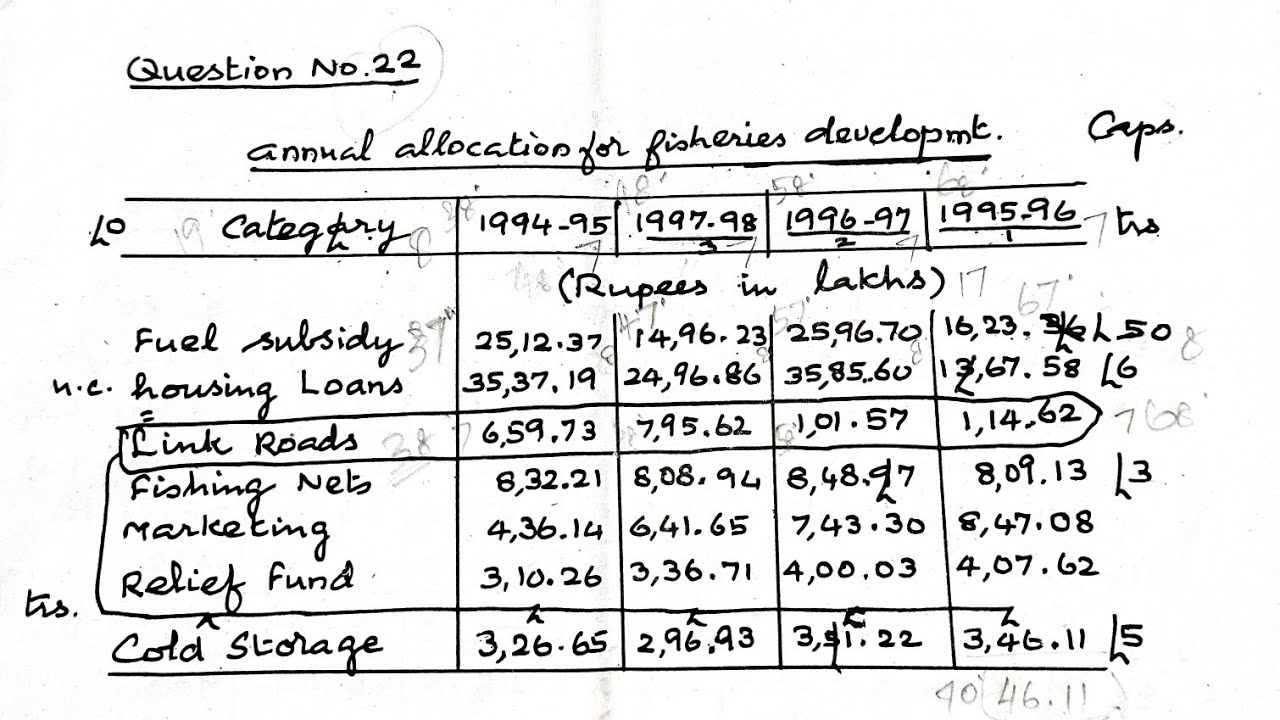 Question No.22
annual allocation for fisheries developmt. Caps.
⁁o 19 Category 8 28' 1994-95 48' 1997-98 58' 1996-97 68' 1995-96 7 trs
7 3 7 2 7 1
48 (Rupees in lakhs) 17
Fuel subsidy 37 25,12.37 47' 14,96.23 57' 25,96.70 67' 16,23. ⁁50 8
n.c. housing Loans 35,37.19 24,96.86 35,85.60 13,67.58 ⁁6
Link Roads 28 7 6,59.73 7,95.62 1,01.57 1,14.62 7 68'
Fishing Nets 8,32.21 8,08.94 8,48.97 8,09.13 ⁁3
Marketing 4,36.14 6,41.65 7,43.30 8,47.08
Relief Fund 3,10.26 3,36.71 4,00.03 4,07.62
trs.
Cold Storage 3,26.65 2,96.93 3,31.22 3,46.11 ⁁5
40 (46.11)